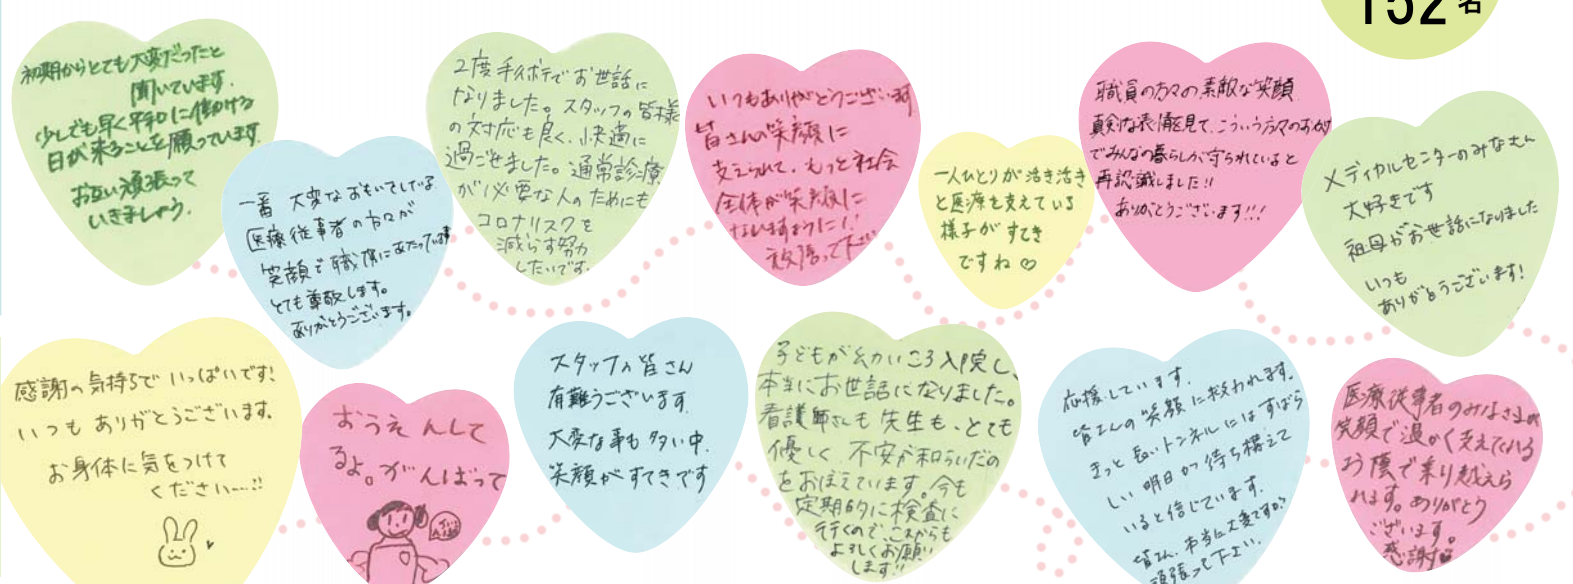 152名
初期からとても大変だったと
聞いています。
少しでも早く平和に働ける
日が来ることを願っています。
お互い頑張って
いきましょう。
一番 大変なおもいてしている
医療従事者の方々が
笑顔で職務にあたっています
とても尊敬します。
ありがとうございます。
2度手術でお世話に
なりました。スタッフの皆様
の対応も良く、快適に
過ごせました。通常診療
が必要な人のためにも
コロナリスクを
減らす努力
したいです。
いつもありがとうございます
皆さんの笑顔に
支えられて、もっと社会
全体が笑顔に
なりますように!!
頑張って下さい
一人ひとりが活き活き
と医療を支えている
様子がすてき
ですね♡
職員の方々の素敵な笑顔
真剣な表情を見て、こういう方々のおかげ
でみんなの暮らしが守られていると
再認識しました!!
ありがとうございます!!!
メディカルセンターのみなさん
大好きです
祖母がお世話になりました
いつも
ありがとうございます!
感謝の気持ちでいっぱいです!
いつもありがとうございます。
お身体に気をつけて
ください…!!
おうえんして
るよ。がんばって
スタッフの皆さん
有難うございます。
大変な事も多い中、
笑顔がすてきです
子どもが幼いころ入院し、
本当にお世話になりました。
看護師さんも先生も、とても
優しく、不安が和らいだの
をおぼえています。今も
定期的に検査に
行くので、これからも
よろしくお願い
します!!
応援しています。
皆さんの笑顔に救われます。
きっと長いトンネルにはすばら
しい明日が待ち構えて
いると信じています。
皆さん、本当に大変ですが、
頑張って下さい。
医療従事者のみなさまが
笑顔で温かく支えている
お陰で乗り越えら
れます。ありがとう
ございます。
感謝